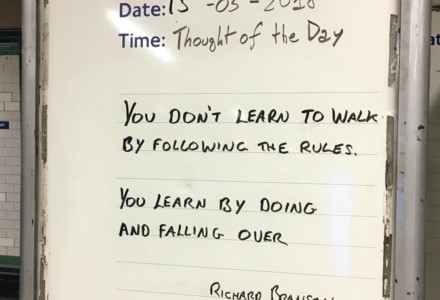 Date: 15 -03-2018
Time: Thought of the Day
YOU DON'T LEARN TO WALK
BY FOLLOWING THE RULES.
YOU LEARN BY DOING
AND FALLING OVER
RICHARD BRANSON